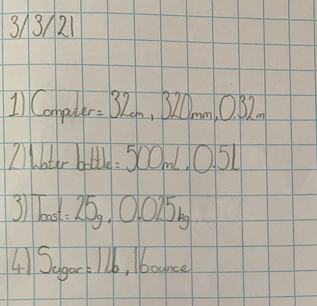 3/3/21
1) Computer = 32cm, 320mm, 0.32m
2) Water bottle = 500mL, 0.5L
3) Toast = 25g, 0.025kg
4) Sugar = 1lb, 16ounce